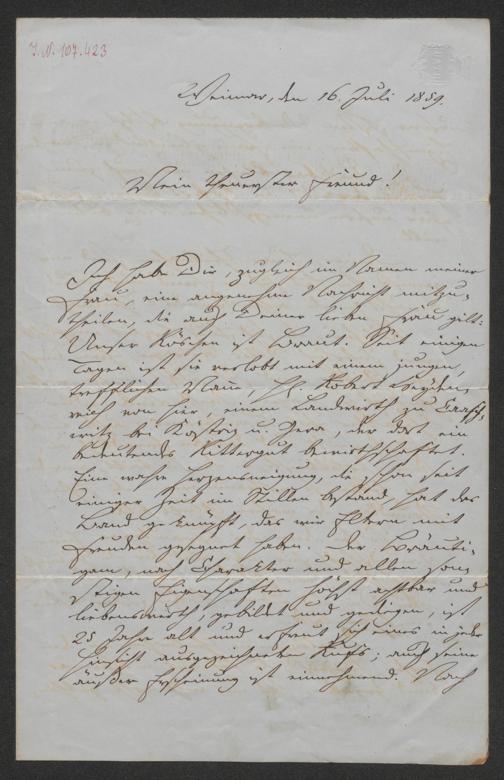 I.N. 107.423
Weimar, den 16. Juli 1859.
Mein theuerster Freund!
Ich habe Dir, zugleich im Namen meiner
Frau, eine angenehme Nachricht mitzu-
theilen, die auch Deiner lieben Frau gilt:
Unser Röschen ist Braut. Seit einigen
Tagen ist sie verlobt mit einem jungen,
trefflichen Mann, Hr. Robert
reich von hier, einem Landwirth zu
witz bei Köstritz u. Gera, der dort ein
bedeutendes Rittergut bewirthschaftet.
Eine wahre Herzensneigung, die schon seit
einiger Zeit im Stillen bestand, hat das
Band geknüpft, das wir Eltern mit
Freuden gesegnet haben. Der Bräuti-
gam, nach Charakter und allen son-
stigen Eigenschaften höchst achtbar und
liebenswerth, gebildet und gediegen, ist
25 Jahre alt und erfreut sich eines in jeder
Hinsicht ausgezeichneten Rufs; auch seine
äußere Erscheinung ist einnehmend. Nach